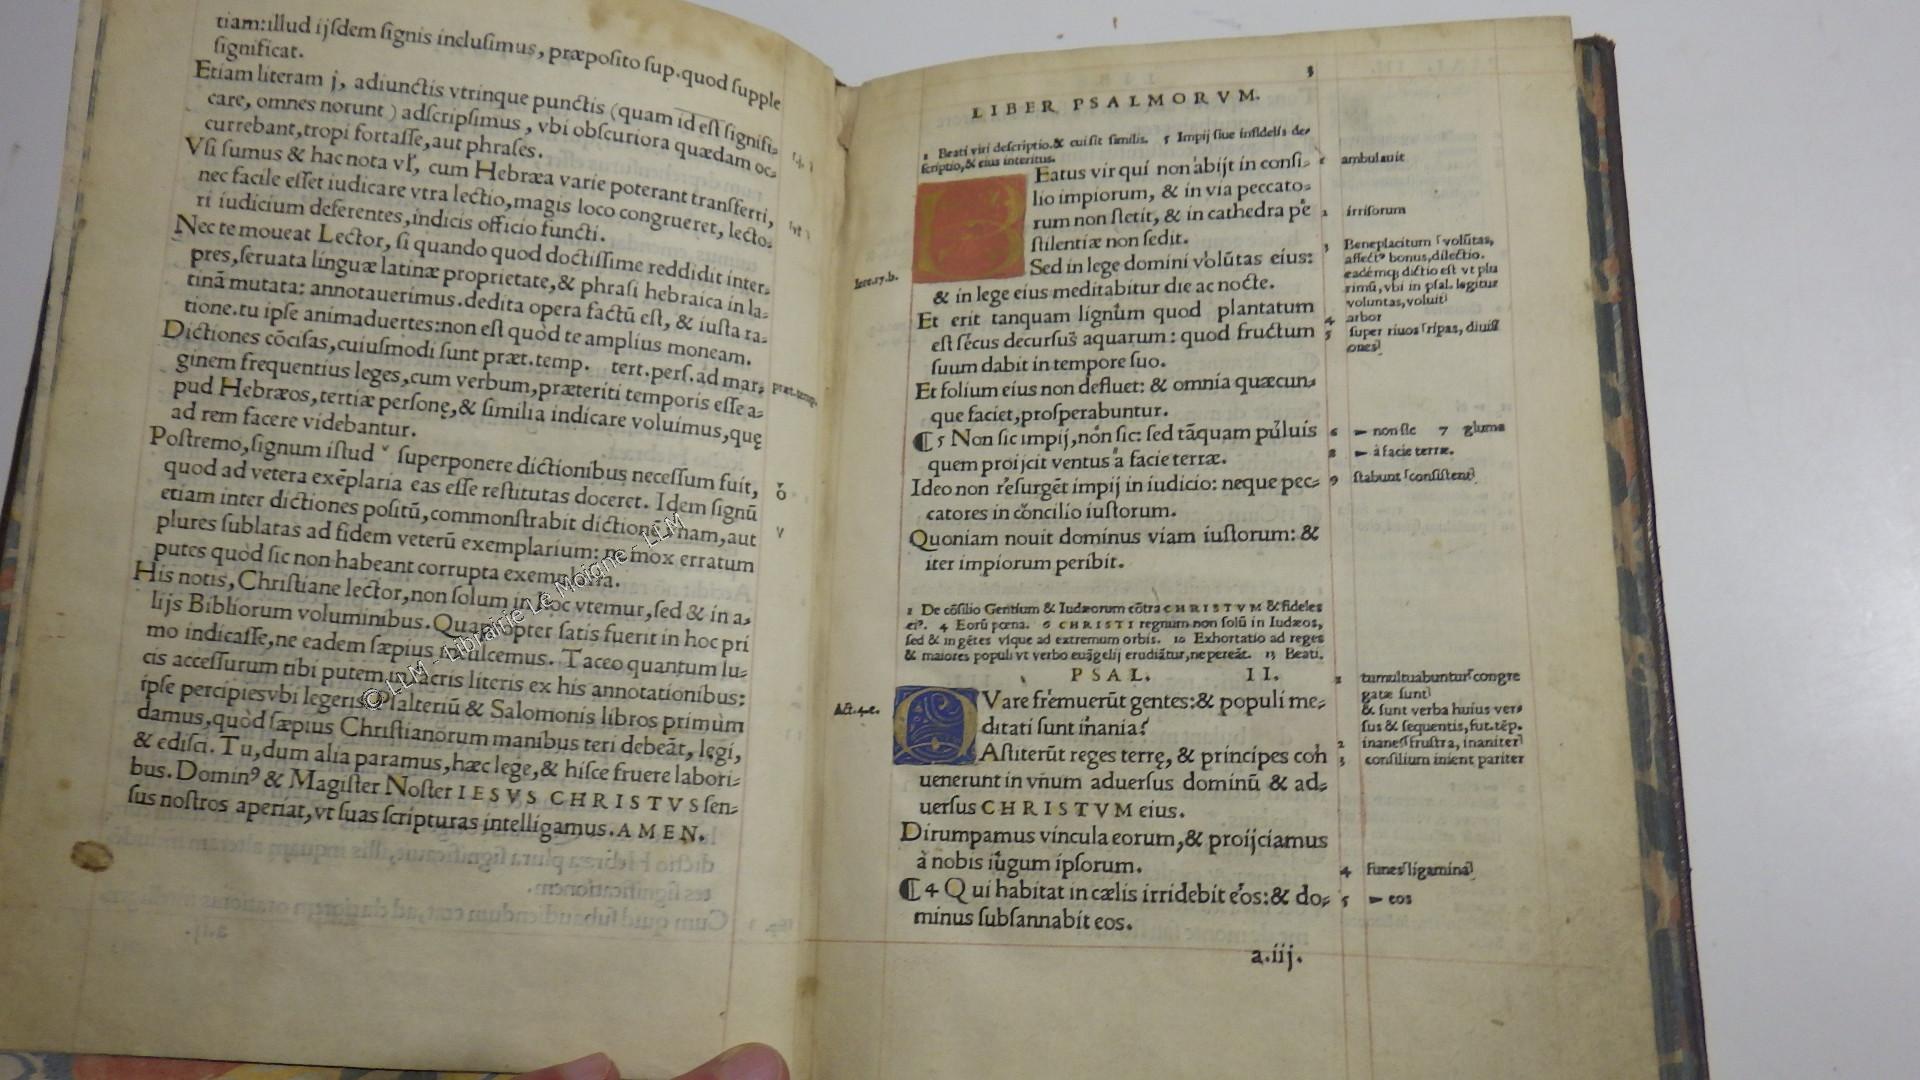 tiam:illud ijſdem ſignis incluſimus, præpoſito ſup.quod ſupple
ſignificat.
Etiam literam j, adiunctis vtrinque punctis (quam id eſt ſignifi-
care, omnes norunt) adſcripſimus, vbi obſcuriora quædam oc-
currebant,tropi fortaſſe,aut phraſes.
Vſi ſumus & hac nota vl', cum Hebræa varie poterant transferri,
nec facile eſſet iudicare vtra lectio,magis loco congrueret, lecto-
ri iudicium deferentes,indicis officio functi.
Nec te moueat Lector, ſi quando quod doctiſſime reddidit inter-
pres,ſeruata linguæ latinæ proprietate,& phraſi hebraica in la-
tinā mutata: annotauerimus.dedita opera factū eſt, & iuſta ra-
tione.tu ipſe animaduertes:non eſt quòd te amplius moneam.
Dictiones cōciſas,cuiuſmodi ſunt præt.temp. tert.perſ.ad mar-
ginem frequentius leges,cum verbum,præteriti temporis eſſe a-
pud Hebræos,tertiæ perſonę,& ſimilia indicare voluimus,quę
ad rem facere videbantur.
præt.temp.
Poſtremo,ſignum iſtud ˅ ſuperponere dictionibus neceſſum fuit,
quod ad vetera exēplaria eas eſſe reſtitutas doceret. Idem ſignū
etiam inter dictiones poſitū,commonſtrabit dictionē vnam,aut
plures ſublatas ad fidem veterū exemplarium: ne mox erratum
putes quòd ſic non habeant corrupta exemplaria.
His notis, Chriſtiane lector,non ſolum in hoc vtemur,ſed & in a-
lijs Bibliorum voluminibus. Quapropter ſatis fuerit in hoc pri
mo indicaſſe,ne eadem ſæpius inculcemus. Taceo quantum lu-
cis acceſſurum tibi putem in ſacris literis ex his annotationibus:
ipſe percipies vbi legeris. Pſalteriū & Salomonis libros primùm
damus,quòd ſæpius Chriſtianorum manibus teri debeāt, legi,
& ediſci. Tu,dum alia paramus,hæc lege,& hiſce fruere labori-
bus. Dominꝰ & Magiſter Noſter IESVS CHRISTVS ſen-
ſus noſtros aperiat,vt ſuas ſcripturas intelligamus. AMEN.
© LLM - Librairie Le Moigne - LLM
LIBER PSALMORVM.
3
1 Beati viri deſcriptio.& cui ſit ſimilis. 5 Impij ſiue infidelis de-
ſcriptio,& eius interitus.
Beatus vir qui non abijt in conſi-
lio impiorum, & in via peccato-
rum non ſtetit, & in cathedra pe
ſtilentiæ non ſedit.
Sed in lege domini volūtas eius:
& in lege eius meditabitur die ac nocte.
Et erit tanquam lignum quod plantatum
eſt ſecus decurſus aquarum: quod fructum
ſuum dabit in tempore ſuo.
Et folium eius non defluet: & omnia quæcun-
que faciet,proſperabuntur.
¶ 5 Non ſic impij,non ſic: ſed tāquam puluis
quem proijcit ventus à facie terræ.
Ideo non reſurgēt impij in iudicio: neque pec-
catores in concilio iuſtorum.
Quoniam nouit dominus viam iuſtorum: &
iter impiorum peribit.
Iere.17.b.
1 ambulauit
2 irriſorum
3 Beneplacitum ſvolūtas,
affectꝰ bonus,dilectio.
eadémq; dictio eſt vt plu
rimū, vbi in pſal. legitur
voluntas,voluit
4 arbor
5 ſuper riuos ſripas, diuiſi
ones
6 ► non ſic 7 gluma
8 ► à facie terræ.
9 ſtabunt ſconſiſtent
1 De cōſilio Gentium & Iudæorum cōtra CHRISTVM & fideles
eiꝰ. 4 Eorū pœna. 6 CHRISTI regnum non ſolū in Iudæos,
ſed & in gētes vſque ad extremum orbis. 10 Exhortatio ad reges
& maiores populi vt verbo euāgelij erudiātur,ne pereāt. 13 Beati.
PSAL. II.
Quare fremuerūt gentes:& populi me-
ditati ſunt inania?
Aſtiterūt reges terrę, & principes con
uenerunt in vnum aduerſus dominū & ad-
uerſus CHRISTVM eius.
Dirumpamus vincula eorum,& proijciamus
à nobis iugum ipſorum.
¶ 4 Qui habitat in cælis irridebit eos:& do-
minus ſubſannabit eos.
Act.4.e.
1 tumultuabuntur ſcongre
gatæ ſunt
& ſunt verba huius ver-
ſus & ſequentis, fut.tēp.
2 inanes ſfruſtra, inaniter
3 conſilium inient pariter
4 funes ſligamina
5 ► eos
a.iij.